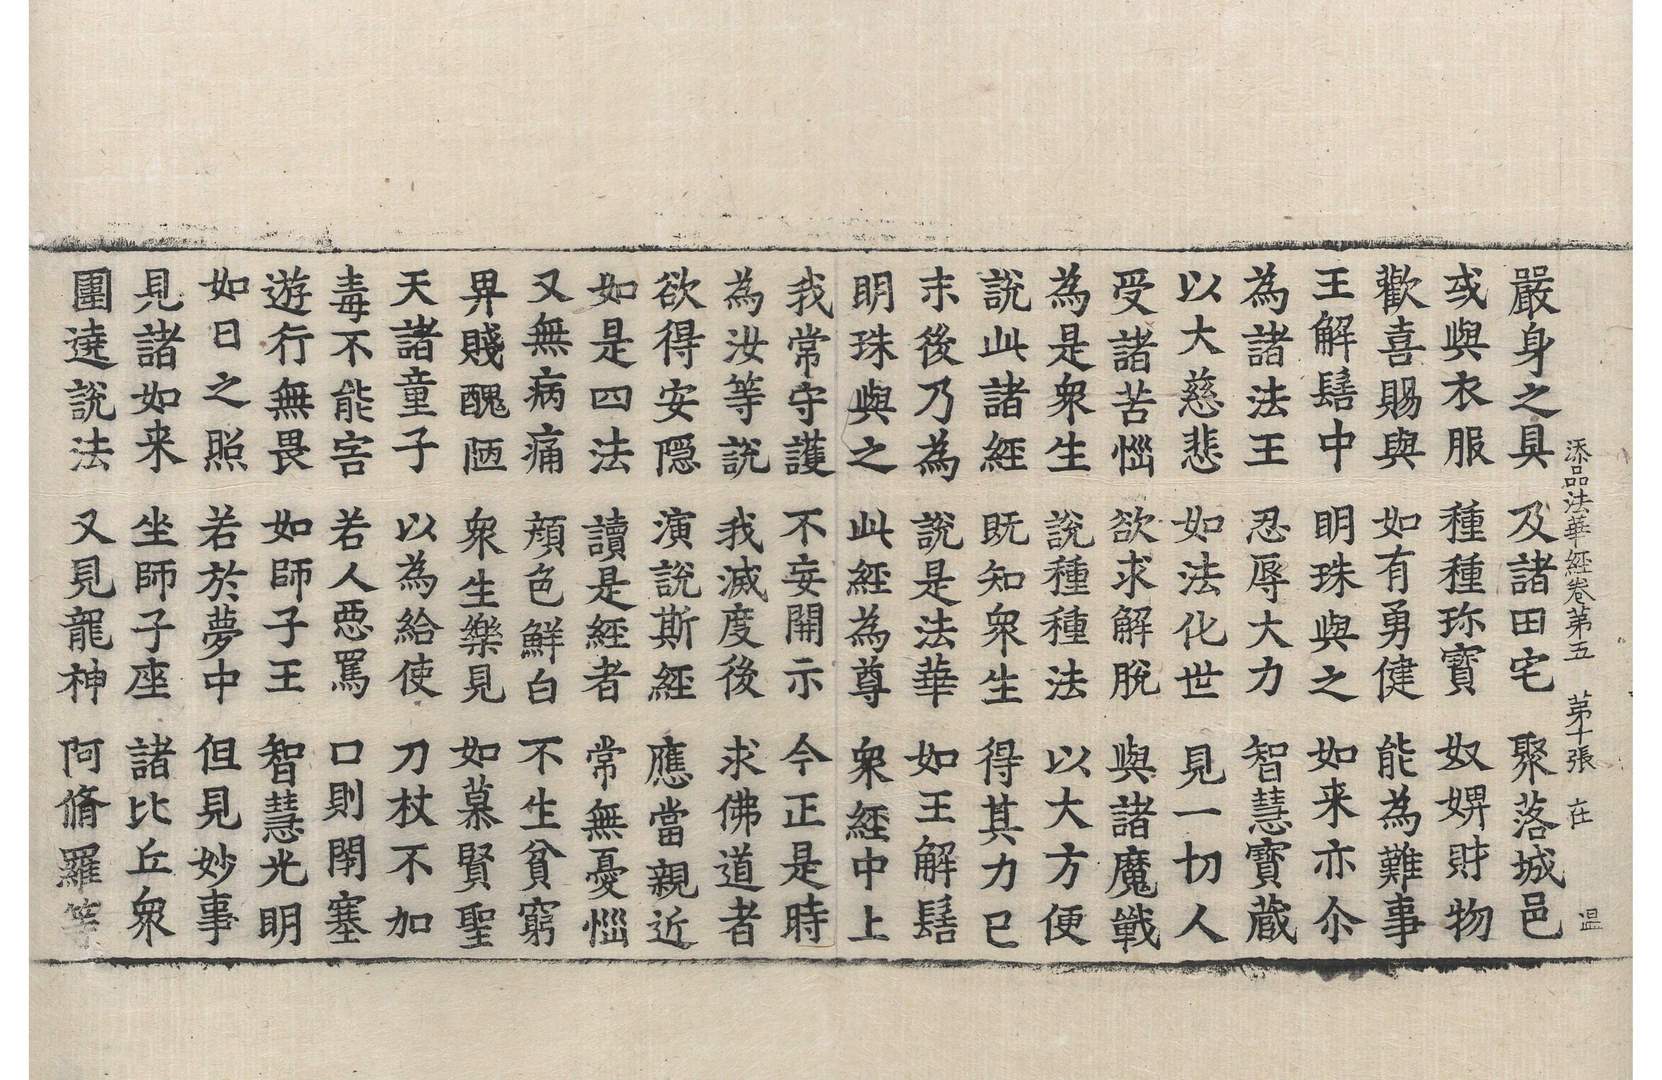 添品法華經卷第五 第十張 在 温
嚴身之具 及諸田宅 聚落城邑
或與衣服 種種珎寶 奴婢財物
歡喜賜與 如有勇健 能為難事
王解髻中 明珠與之 如来亦尒
為諸法王 忍辱大力 智慧寶蔵
以大慈悲 如法化世 見一切人
受諸苦惱 欲求解脫 與諸魔戰
為是衆生 說種種法 以大方便
說此諸經 既知衆生 得其力已
末後乃為 說是法華 如王解髻
明珠與之 此經為尊 衆經中上
我常守護 不妄開示 今正是時
為汝等說 我滅度後 求佛道者
欲得安隱 演說斯經 應當親近
如是四法 讀是經者 常無憂惱
又無病痛 顔色鮮白 不生貧窮
畀賤醜陋 衆生樂見 如慕賢聖
天諸童子 以為給使 刀杖不加
毒不能害 若人惡罵 口則閇塞
遊行無畏 如師子王 智慧光明
如日之照 若於夢中 但見妙事
見諸如来 坐師子座 諸比丘衆
圍遶說法 又見龍神 阿脩羅等